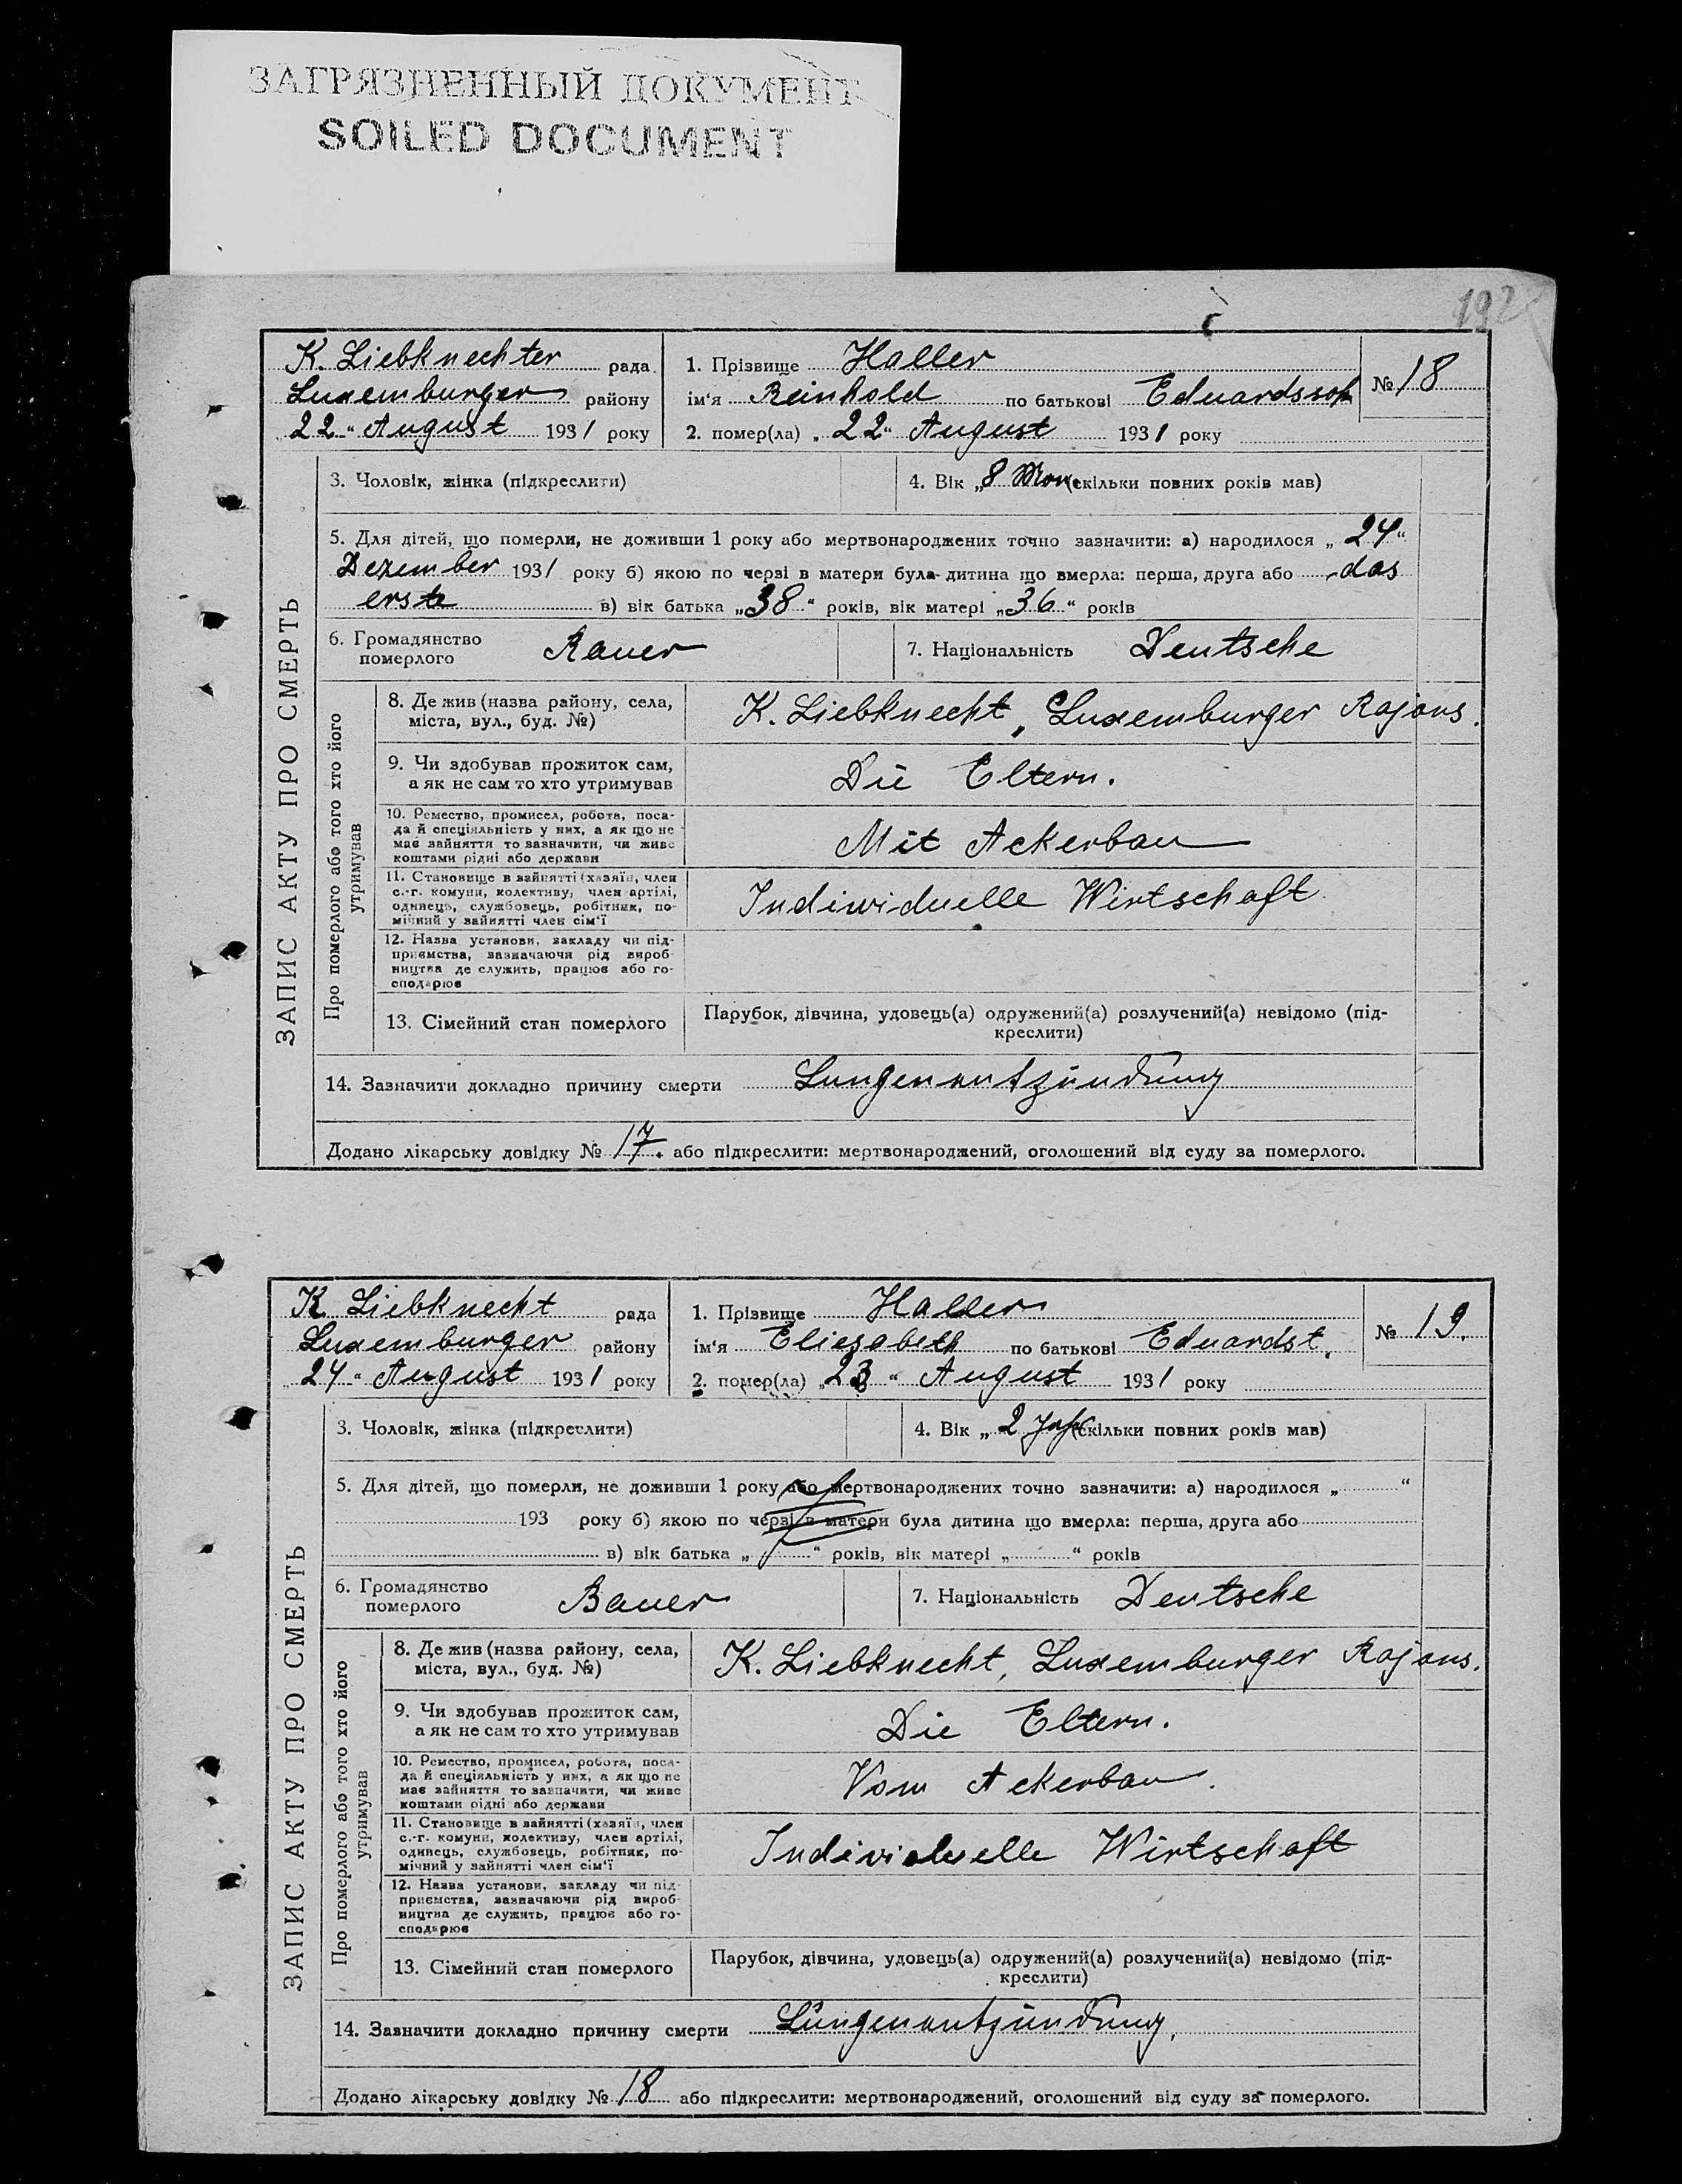 ЗАГРЯЗНЕННЫЙ ДОКУМЕНТ
SOILED DOCUMENT
192
K. Liebknechter рада
Luxemburger району
„22“ August 1931 року
1. Прізвище Haller
ім‘я Reinhold по батькові Eduardssoh
№ 18
2. помер(ла) „22“ August 1931 року
3. Чоловік, жінка (підкреслити)
4. Вік „8 Mon (скільки повних років мав)
5. Для дітей, що померли, не доживши 1 року або мертвонароджених точно зазначити: а) народилося „24“
Dezember 1931 року б) якою по черзі в матери була дитина що вмерла: перша, друга або das
erste в) вік батька „38“ років, вік матері „36“ років
6. Громадянство
померлого Bauer
7. Національність Deutsche
ЗАПИС АКТУ ПРО СМЕРТЬ
Про померлого або того хто його
утримував
8. Де жив (назва району, села,
міста, вул., буд. №) K. Liebknecht, Luxemburger Rajons.
9. Чи здобував прожиток сам,
а як не сам то хто утримував Die Eltern.
10. Ремество, промисел, робота, поса-
да й спеціяльність у них, а як що не
має зайняття то зазначити, чи живе
коштами рідні або держави Mit Ackerbau
11. Становище в зайнятті (хазяїн, член
с.-г. комуни, колективу, член артілі,
одинець, службовець, робітник, по-
мічний у зайнятті член сім‘ї Indiwiduelle Wirtschaft
12. Назва установи, закладу чи під-
приємства, зазначаючи рід вироб-
ництва де служить, працює або го-
сподарює
13. Сімейний стан померлого
Парубок, дівчина, удовець(а) одружений(а) розлучений(а) невідомо (під-
креслити)
14. Зазначити докладно причину смерти Lungenentzündung
Додано лікарську довідку № 17. або підкреслити: мертвонароджений, оголошений від суду за померлого.
K Liebknecht рада
Luxemburger району
„24“ August 1931 року
1. Прізвище Haller
ім‘я Eliesabeth по батькові Eduardst.
№ 19.
2. помер(ла) „23“ August 1931 року
3. Чоловік, жінка (підкреслити)
4. Вік „2 Jahr (скільки повних років мав)
5. Для дітей, що померли, не доживши 1 року або мертвонароджених точно зазначити: а) народилося „ “
193 року б) якою по черзі в матери була дитина що вмерла: перша, друга або
в) вік батька „ “ років, вік матері „ “ років
6. Громадянство
померлого Bauer
7. Національність Deutsche
ЗАПИС АКТУ ПРО СМЕРТЬ
Про померлого або того хто його
утримував
8. Де жив (назва району, села,
міста, вул., буд. №) K. Liebknecht, Luxemburger Rajons.
9. Чи здобував прожиток сам,
а як не сам то хто утримував Die Eltern.
10. Ремество, промисел, робота, поса-
да й спеціяльність у них, а як що не
має зайняття то зазначити, чи живе
коштами рідні або держави Vom Ackerbau.
11. Становище в зайнятті (хазяїн, член
с.-г. комуни, колективу, член артілі,
одинець, службовець, робітник, по-
мічний у зайнятті член сім‘ї Individuelle Wirtschaft
12. Назва установи, закладу чи під-
приємства, зазначаючи рід вироб-
ництва де служить, працює або го-
сподарює
13. Сімейний стан померлого
Парубок, дівчина, удовець(а) одружений(а) розлучений(а) невідомо (під-
креслити)
14. Зазначити докладно причину смерти Lungenentzündung.
Додано лікарську довідку № 18 або підкреслити: мертвонароджений, оголошений від суду за померлого.